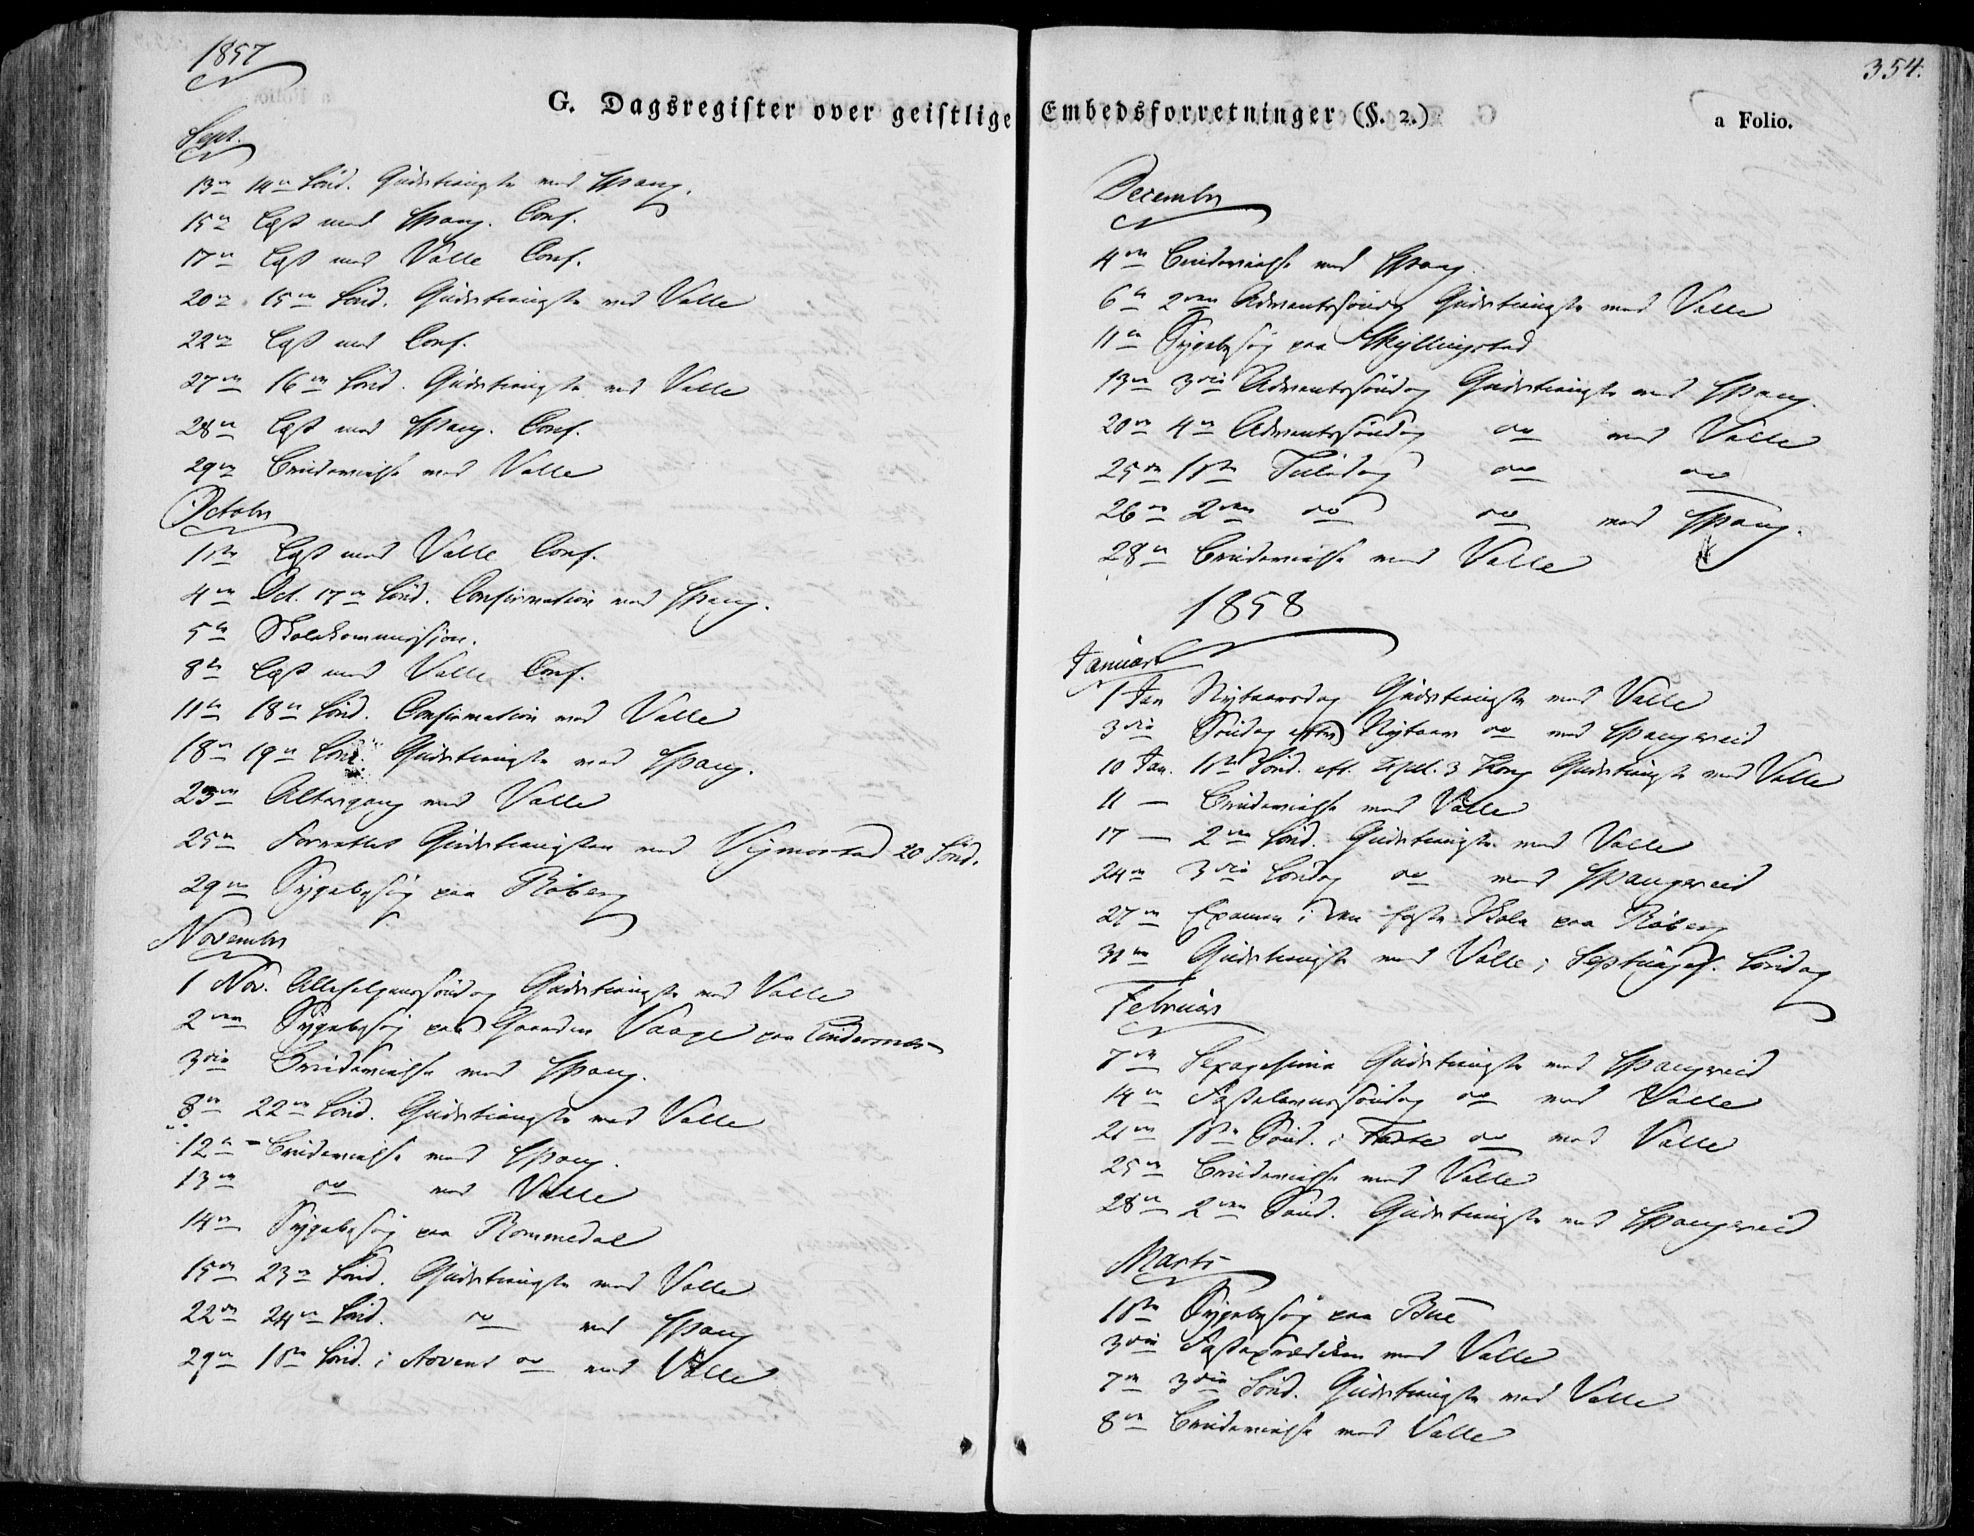 1857
G. Dagsregister over geistlige Embedsforretninger (§. 2.)
a Folio.
354.
Sept.
13de 14de Sønd. Gudstieneste ved Spang.
15de Læst med Spang. Conf.
17de Læst med Valle Conf.
20de 15de Sønd. Gudstieneste ved Valle
22de Læst med Conf.
27de 16de Sønd. Gudstieneste ved Valle
28de Læst med Spang. Conf.
29de Brudevielse ved Valle
October
1ste Læst med Valle Conf.
4de Oct. 17de Sønd. Confirmation ved Spang.
5te Skolekommission.
8de Læst med Valle Conf.
11te 18de Sønd. Confirmation ved Valle
18de 19de Sønd. Gudstieneste ved Spang.
23de Altergang ved Valle
25de Forrettet Gudstienesten ved Vigmostad 20 Sønd.
29de Sygebesøg paa Røberg
November
1 Nov. Allehelgenssøndag Gudstieneste ved Valle
2den Sygebesøg paa Gaarden Vaage paa Lindesnes
3die Brudevielse ved Spang.
8de 22de Sønd. Gudstieneste ved Valle
12te - Brudevielse ved Spang.
13de do ved Valle
14de Sygebesøg paa Rommedal
15de 23de Sønd. Gudstieneste ved Valle
22de 24de Sønd. do ved Spang
29de 1ste Sønd. i Advent do ved Valle
December
4de Brudevielse ved Spang.
6te 2den Adventssøndag Gudstieneste ved Valle
11te Sygebesøg paa Skyllingstad
13de 3die Adventssøndag Gudstieneste ved Spang.
20de 4de Adventssøndag do ved Valle
25de 1ste Juledag do do
26de 2den do do ved Spang.
28de Brudevielse ved Valle
1858
Januar
1 Jan Nytaarsdag Gudstieneste ved Valle
3die Søndag efter Nytaar do ved Spangereid
10 Jan. 1ste Sønd. eft. Hel. 3 Kong Gudstieneste ved Valle
11 — Brudevielse ved Valle
17 — 2den Sønd. Gudstieneste ved Valle
24de 3die Søndag do ved Spangereid
27de Examen i den faste Skole paa Røberg
31te Gudstieneste ved Valle; Septuages. Søndag
Februar
7de Sexagesima Gudstieneste ved Spangereid
14de Fastelavnssøndag do ved Valle
21de 1ste Sønd. i Faste do ved Valle
25de Brudevielse ved Valle
28de 2den Sønd. Gudstieneste ved Spangereid
Marts
1ste Sygebesøg paa Bue
3die Fasteprædiken ved Valle
7de 3die Sønd. Gudstieneste ved Valle
8de Brudevielse ved Valle